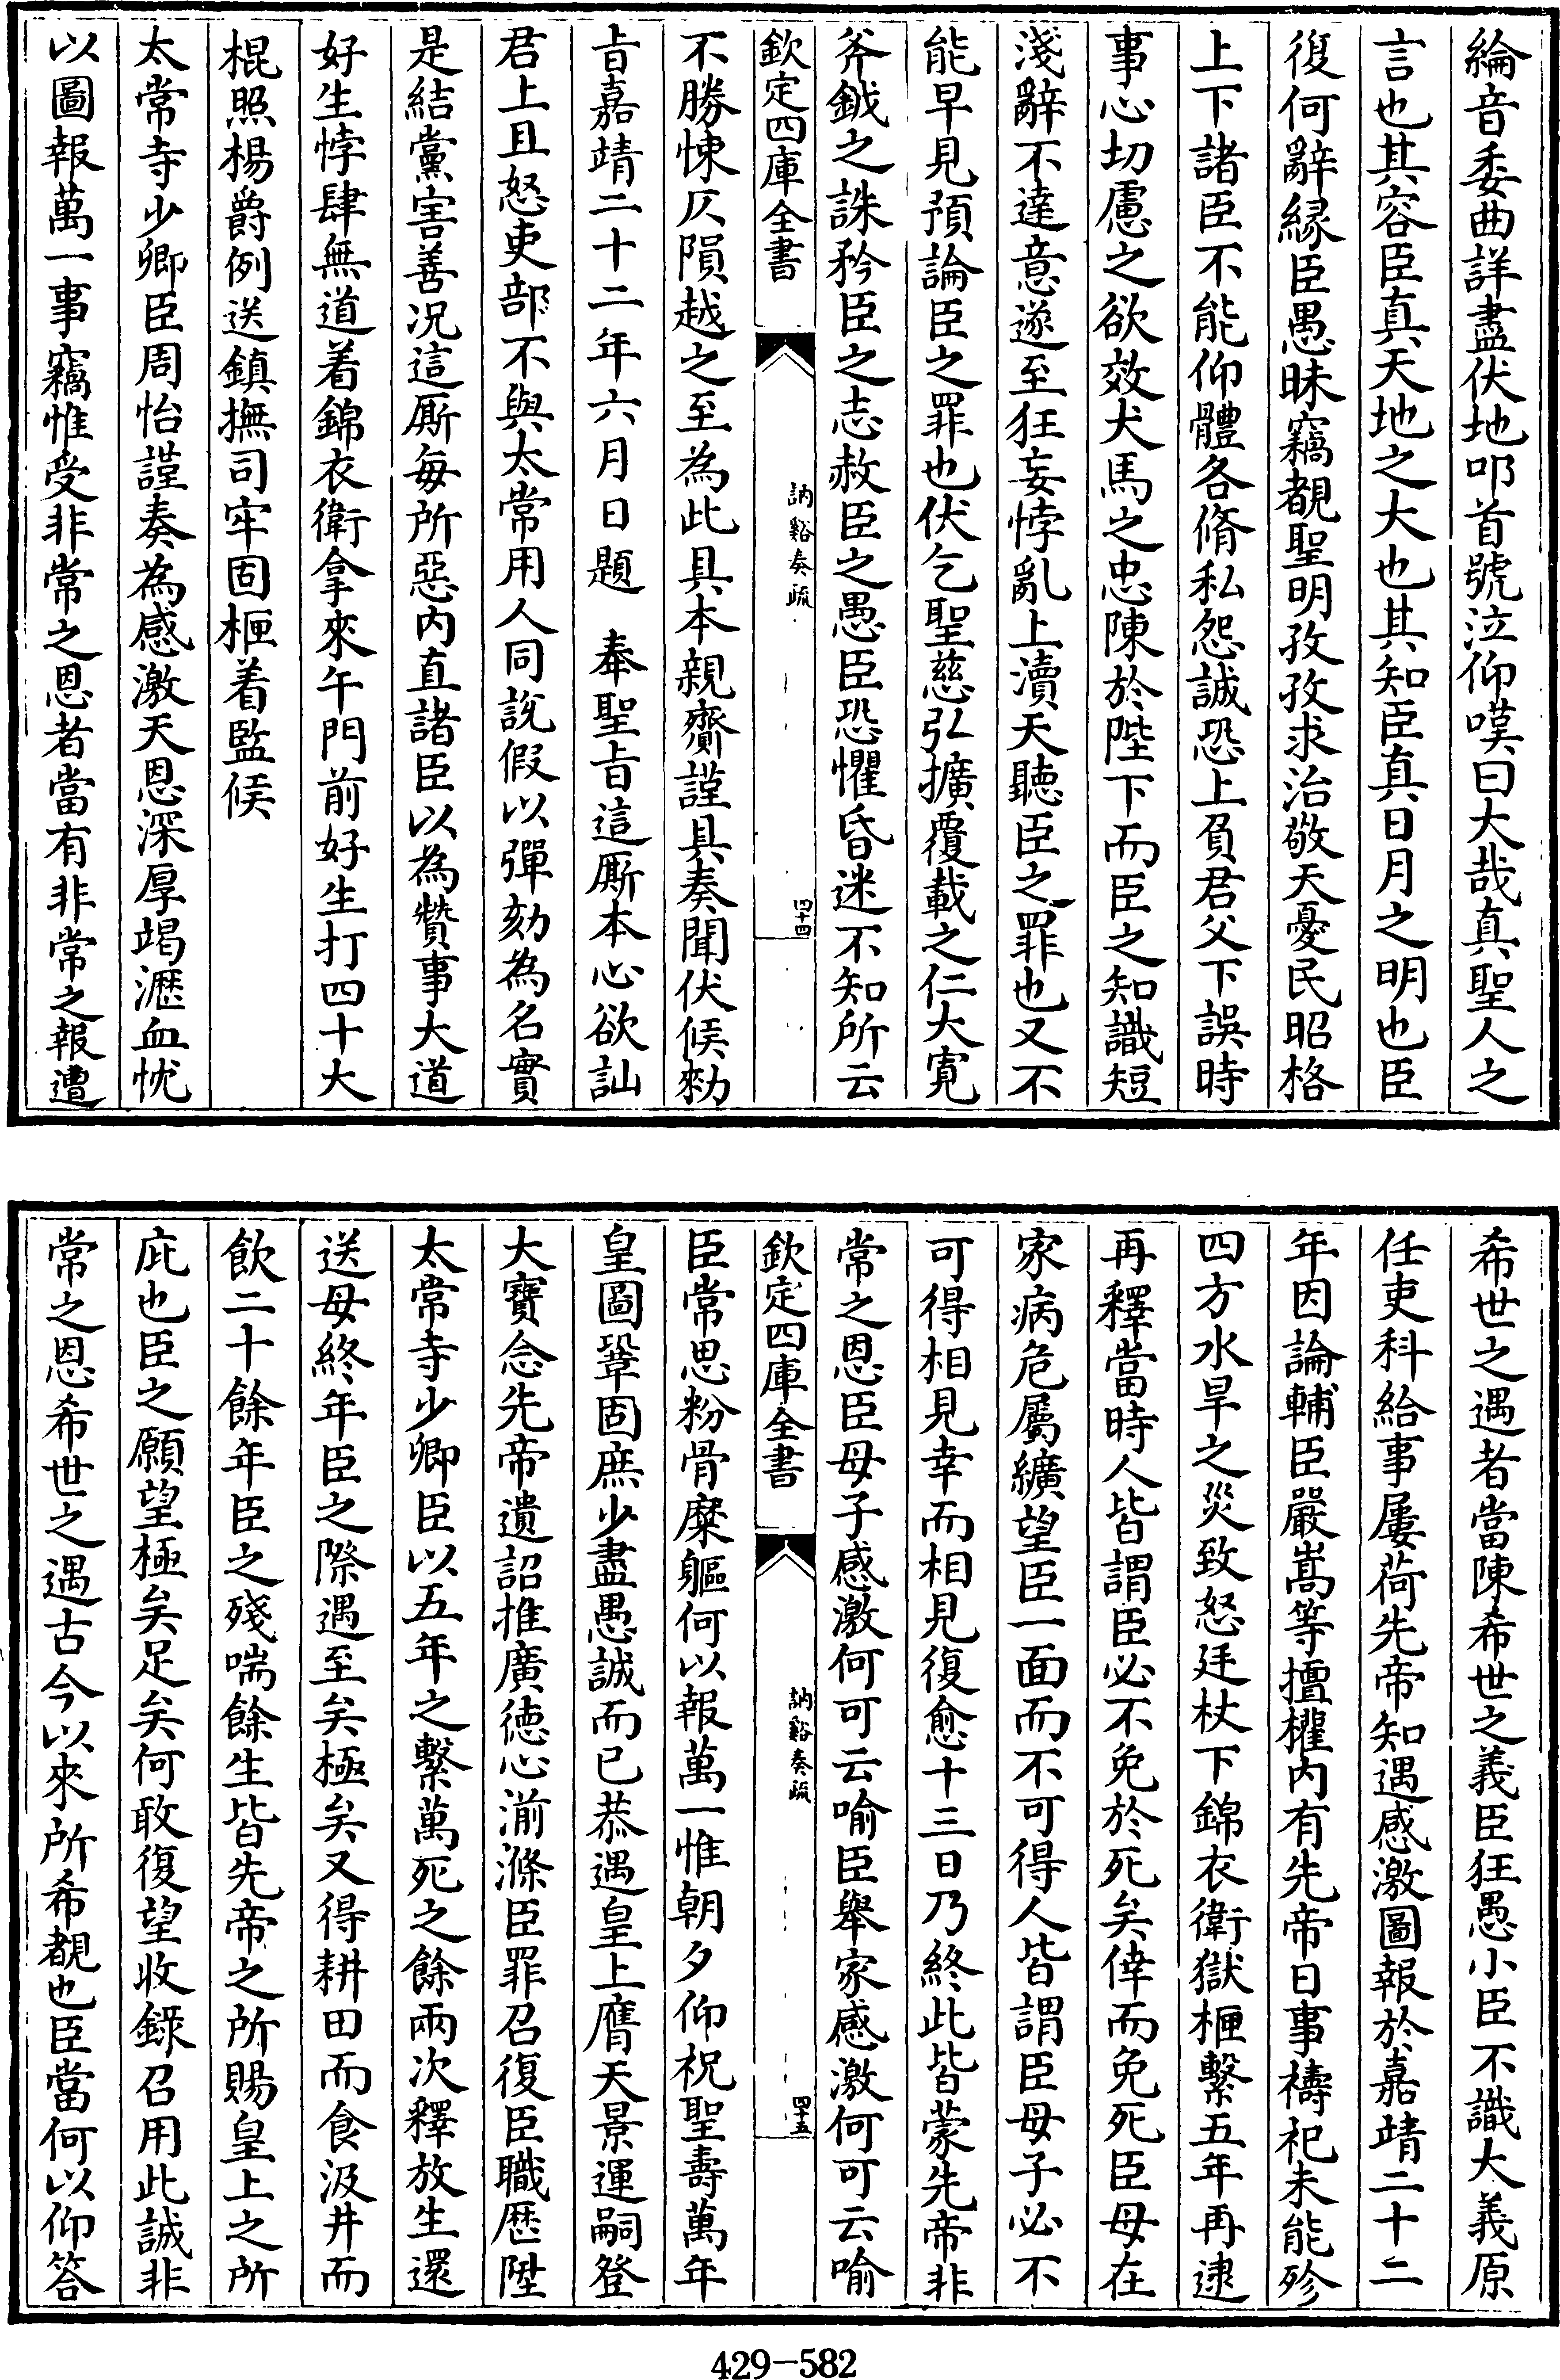 綸音委曲詳盡伏地叩首號泣仰嘆曰大哉真聖人之
言也其容臣真天地之大也其知臣真日月之明也臣
復何辭緣臣愚昧竊覩聖明孜孜求治敬天憂民昭格
上下諸臣不能仰體各脩私怨誠恐上負君父下誤時
事心切慮之欲效犬馬之忠陳於陛下而臣之知識短
淺辭不達意遂至狂妄悖亂上瀆天聽臣之罪也又不
能早見預論臣之罪也伏乞聖慈弘擴覆載之仁大寛
斧鉞之誅矜臣之志赦臣之愚臣恐懼昏迷不知所云
欽定四庫全書
訥谿奏疏
四十四
不勝悚仄隕越之至為此具本親齎謹具奏聞伏候勑
㫖嘉靖二十二年六月日題 奉聖㫖這厮本心欲訕
君上且怒吏部不與太常用人同說假以彈劾為名實
是結黨害善况這厮每所惡内直諸臣以為贊事大道
好生悖肆無道着錦衣衛拿來午門前好生打四十大
棍照楊爵例送鎮撫司牢固柙着監候
太常寺少卿臣周怡謹奏為感激天恩深厚竭瀝血忱
以圖報萬一事竊惟受非常之恩者當有非常之報遭
希世之遇者當陳希世之義臣狂愚小臣不識大義原
任吏科給事屢荷先帝知遇感激圖報於嘉靖二十二
年因論輔臣嚴嵩等擅權内有先帝日事禱祀未能殄
四方水旱之災致怒廷杖下錦衣衛獄柙繫五年再逮
再釋當時人皆謂臣必不免於死矣倖而免死臣母在
家病危屬纊望臣一面而不可得人皆謂臣母子必不
可得相見幸而相見復愈十三日乃終此皆蒙先帝非
常之恩臣母子感激何可云喻臣舉家感激何可云喻
欽定四庫全書
訥谿奏疏
四十五
臣常思粉骨糜軀何以報萬一惟朝夕仰祝聖壽萬年
皇圖鞏固庶少盡愚誠而已恭遇皇上膺天景運嗣登
大寶念先帝遺詔推廣徳心湔滌臣罪召復臣職歷陞
太常寺少卿臣以五年之繫萬死之餘兩次釋放生還
送母終年臣之際遇至矣極矣又得耕田而食汲井而
飲二十餘年臣之殘喘餘生皆先帝之所賜皇上之所
庇也臣之願望極矣足矣何敢復望收錄召用此誠非
常之恩希世之遇古今以來所希覩也臣當何以仰答
429-582